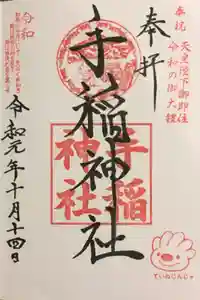 奉祝 天皇陛下御即位
令和の御大禮
奉拝
手稲神社
手稲
神社
令和
令和元年十月十四日
ていねじんじゃ